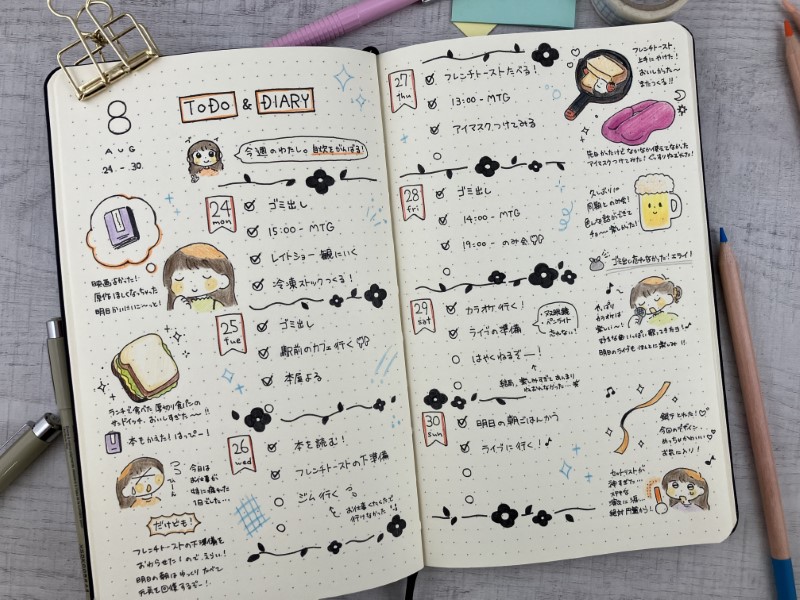 8
AUG
24. – .30.
ToDo & DIARY
今週のわたし。自炊をがんばる!
24 mon
ゴミ出し
15:00 – MTG
レイトショー観にいく
冷凍ストックつくる!
映画よかった!
原作ほしくなっちゃった
明日かいにいこ〜っと!
25 tue
ゴミ出し
駅前のカフェ行く♡♡
本屋よる
ランチで食べた厚切り食パンの
サンドイッチ、おいしすぎた〜!!
本もかえた!はっぴー!
26 wed
本を読む!
フレンチトーストの下準備
ジム行く
お仕事くたくたで
行けなかった
今日は
お仕事が
1日でした…
だけども!
フレンチトーストの下準備を
おわらせた!ので、えらい!
明日の朝はゆっくりたべて
元気を回復するぞー!
27 thu
フレンチトーストたべる!
13:00 – MTG
アイマスクつけてみる
フレンチトースト、
上手にやけた!
おいしかった〜
またつくる!!
先日かったけどなかなか使えてなかった
アイマスクつけてみた!ぐっすりやすめた!
28 fri
ゴミ出し
14:00 – MTG
19:00 – のみ会♡♡
久しぶりの
同期との飲み会!
色んな話ができて
チョ〜楽しかった!
ゴミ出し忘れなかった!エライ!
29 sat
カラオケ行く!
ライブの準備
はやくねるぞー!
・双眼鏡
・ペンライト
わすれない!
結局、楽しみすぎてあんまり
ねれなかった…
やっぱり
カラオケは
楽しい〜!
好きな曲いっぱい歌ってきた日!♪
明日のライブもほんとに楽しみ!!
30 sun
明日の朝ごはんかう
ライブに行く!♪
銀テとれた!♡
今回のデザイン
めっちゃかわいい
お気に入り!
セットリストが
神すぎた…
ステキな
演出に涙…
絶対円盤かう!